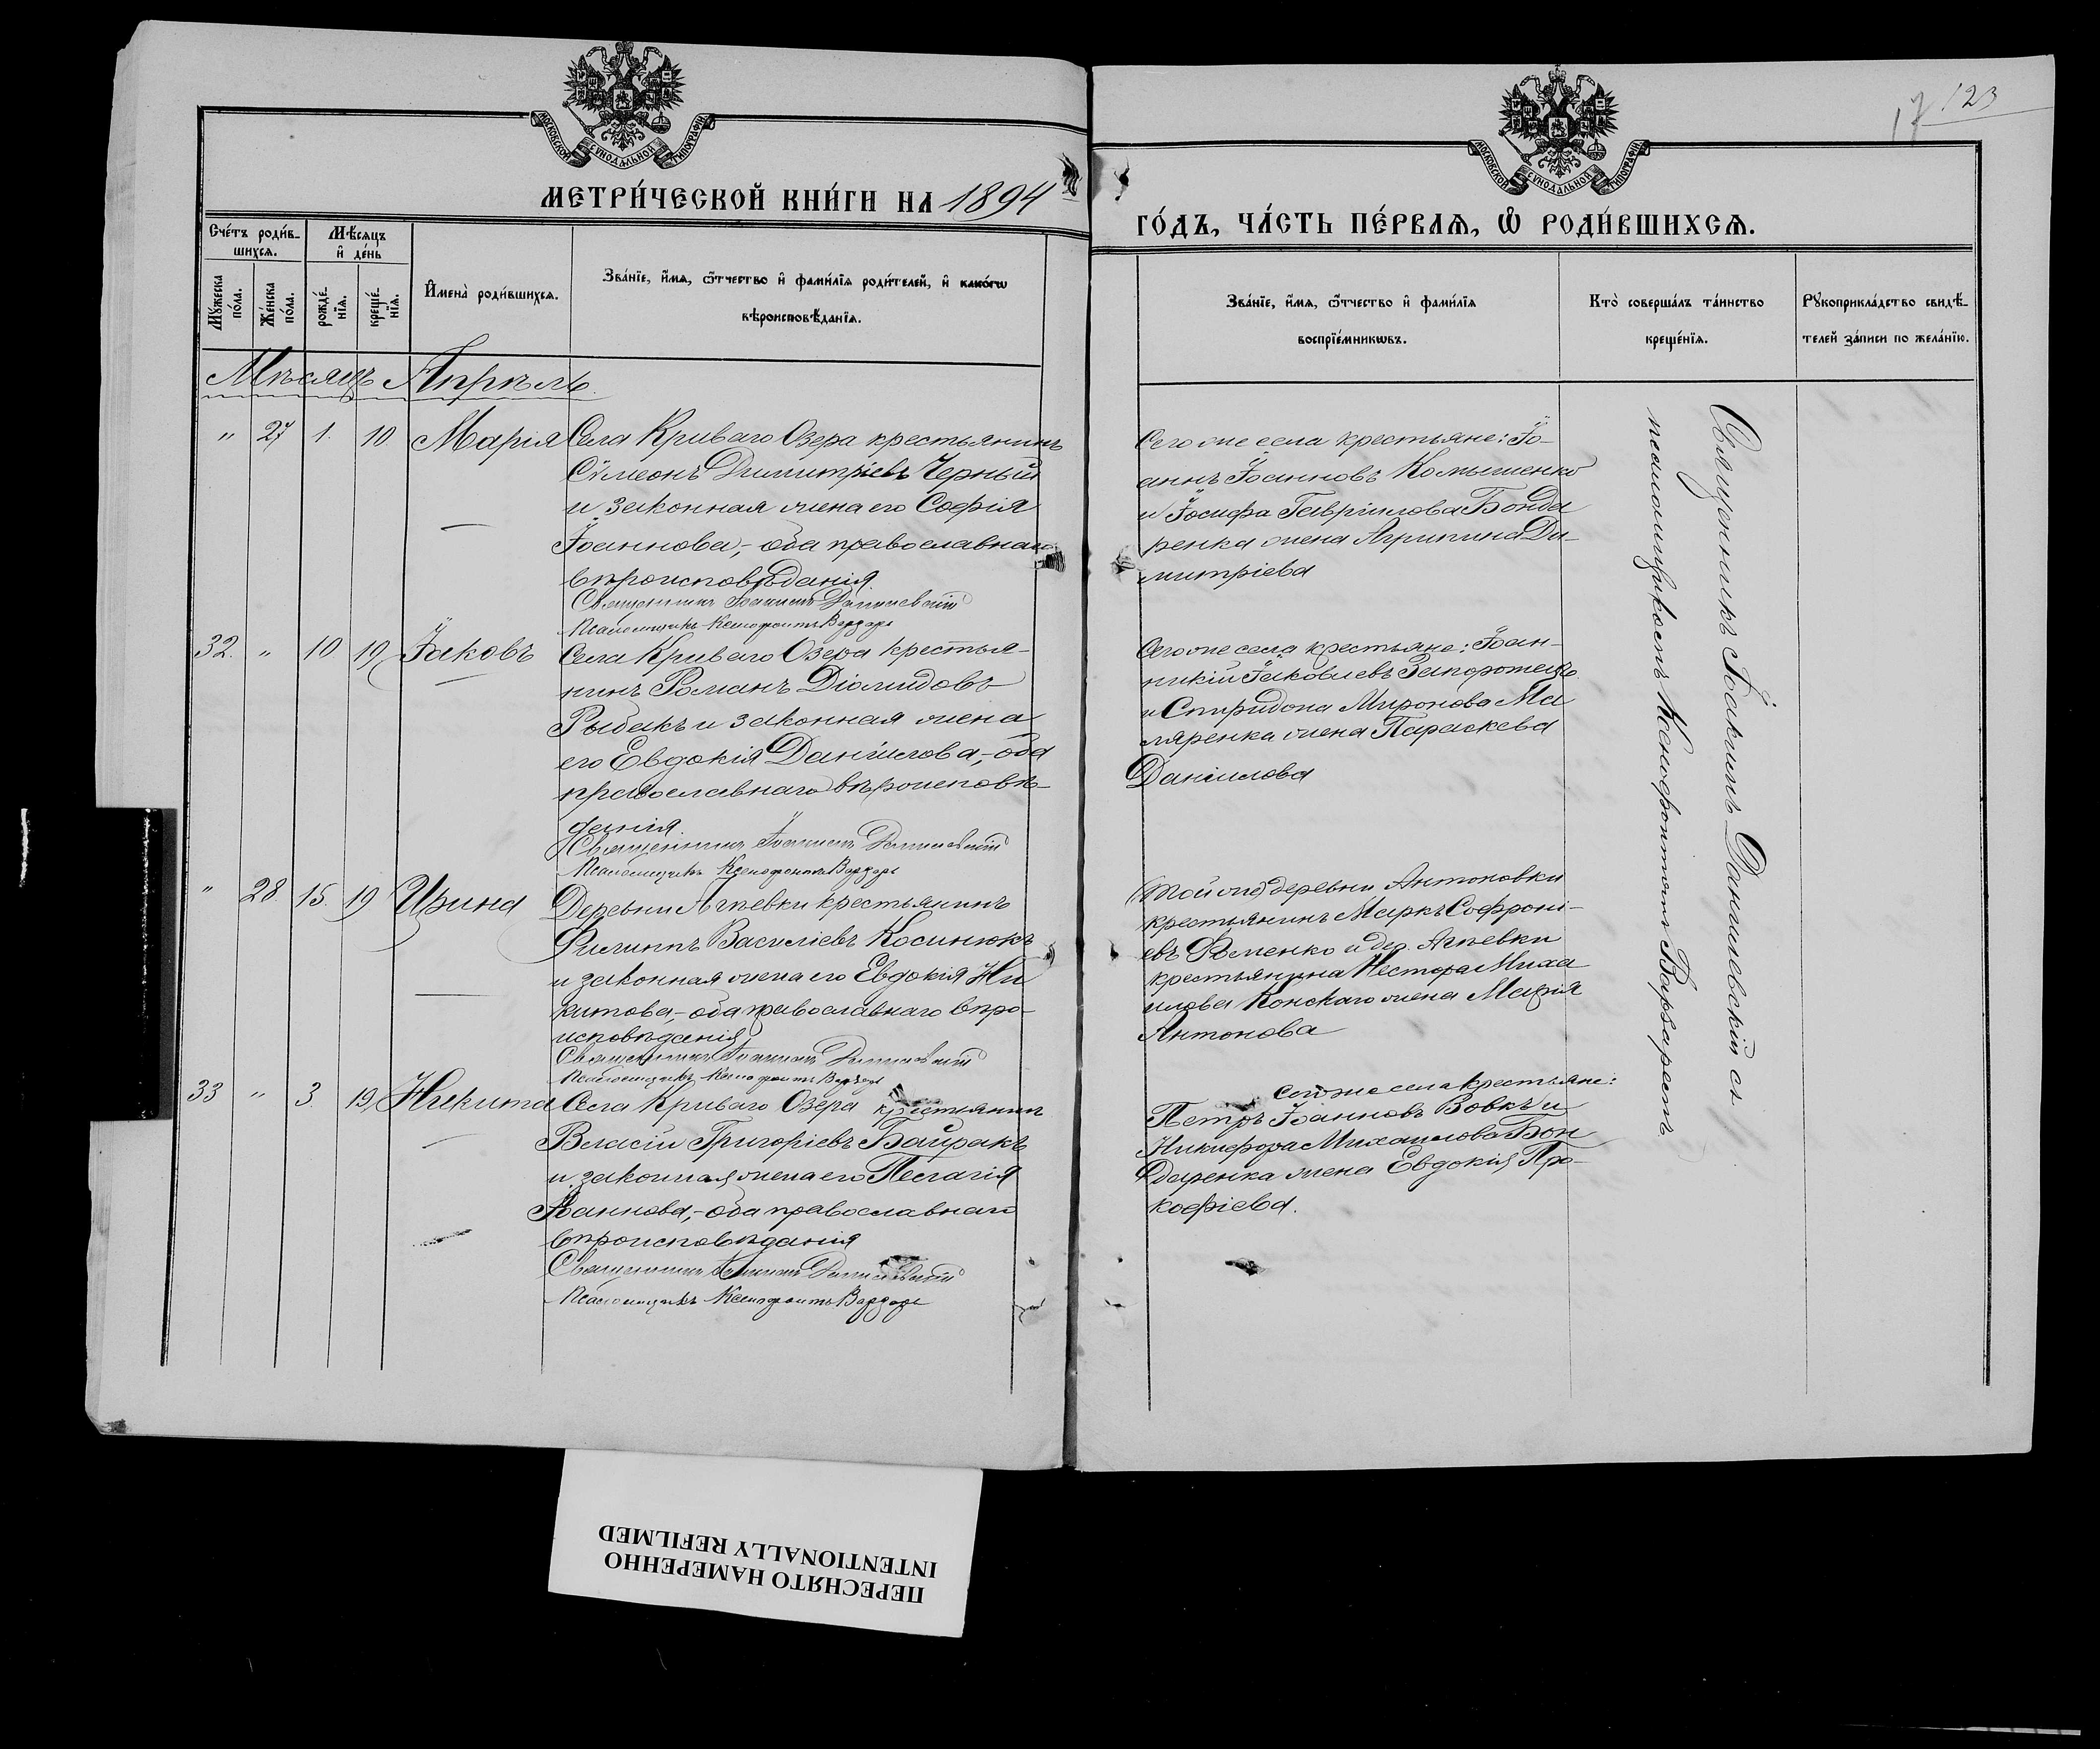 МОСКОВСКОЙ СѴНОДАЛЬНОЙ ТИПОГРАФІИ
МЕТРИ́ЧЕСКОЙ КНИ́ГИ НА 1894
Сче́тъ роди́в-
шихсѧ.
Мѣ́сѧцъ
и҆ де́нь
Мꙋ́жеска
по́ла.
Же́нска
по́ла.
рожде́-
нїѧ.
креще́-
нїѧ.
И҆мена̀ роди́вшихсѧ.
Зва́нїе, и҆́мѧ, ѻ҆́тчество и҆ фами́лїѧ роди́телей, и҆ како́гѡ
вѣроисповѣ́данїѧ.
Мѣсяцъ Апрѣль.
" 27 1. 10 Марія Села Криваго Озера крестьянинъ
Сѵмеонъ Димитріевъ Черный
и законная жена его Софія
Іоаннова,- оба православнаго
вѣроисповѣданія.
Священникъ Іоакимъ Данилевскій
Псаломщикъ Ксенофонтъ Варзарь
32. " 10 19 Іаковъ Села Криваго Озера крестья-
нинъ Романъ Діомидовъ
Рыбакъ и законная жена
его Евдокія Даніилова,- оба
православнаго вѣроисповѣ-
данія.
Священникъ Іоакимъ Данилевскій
Псаломщикъ Ксенофонтъ Варзарь
" 28. 15. 19 Ирина Деревни Агѣевки крестьянинъ
Филиппъ Василіевъ Косинюкъ
и законная жена его Евдокія Ни
китова,- оба православнаго вѣро-
исповѣданія
Священникъ Іоакимъ Данилевскій
Псаломщикъ Ксенофонтъ Варзарь
33 " 3. 19 Никита Села Криваго Озера крестьянинъ
Власій Григоріевъ Байракъ
и законная жена его Пелагія
Іоаннова,- оба православнаго
вѣроисповѣданія
Священникъ Іоакимъ Данилевскій
Псаломщикъ Ксенофонтъ Варзарь
17 123
МОСКОВСКОЙ СѴНОДАЛЬНОЙ ТИПОГРАФІИ
ГО́ДЪ, ЧА́СТЬ ПЕ́РВАѦ, Ѽ РОДИ́ВШИХСѦ.
Зва́нїе, и҆́мѧ, ѻ҆́тчество и҆ фами́лїѧ
воспрїе́мникѡвъ.
Кто̀ соверша́лъ та́инство
креще́нїѧ.
Рꙋкоприкла́дство свидѣ́-
телей за́писи по жела́нїю.
Сего же села крестьяне: Іо-
аннъ Іоанновъ Комышенко
и Іосифа Гавріилова Бонда
ренка жена Агрипина Ди-
митріева
Сего же села крестьяне: Іоан-
никій Іаковлевъ Запорожецъ
и Спиридона Миронова Ма
ляренка жена Параскева
Даніилова
(той же) деревни Антоновки
крестьянинъ Маркъ Софроні-
евъ Фоменко и дер. Агѣевки
крестьянина Нестора Миха
илова Конскаго жена Марія
Антонова
сего же села крестьяне:
Петръ Іоанновъ Вовкъ и
Никифора Михаилова Бон
даренка жена Евдокія Про-
кофіева.
Священникъ Іоакимъ Данилевскій съ
псаломщикомъ Ксенофонтомъ Варзаремъ
ПЕРЕСНЯТО НАМЕРЕННО
INTENTIONALLY REFILMED